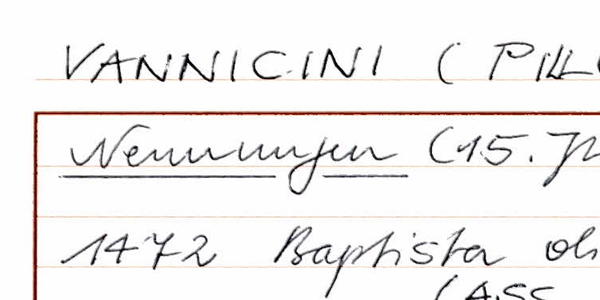 VANNICINI ( PILL
Nennungen (15. J
1472 Baptista
(ASS